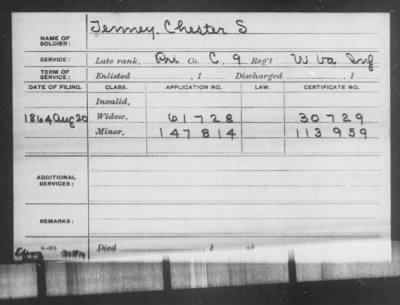 NAME OF SOLDIER: Tenney, Chester S
SERVICE: Late rank, Pvt Co. C, 9 Reg't W Va Inf
TERM OF SERVICE: Enlisted , 1 Discharged , 1
DATE OF FILING. CLASS. APPLICATION NO. LAW. CERTIFICATE NO.
Invalid,
1864 Aug 20 Widow, 61728 30729
Minor, 147814 113959
ADDITIONAL SERVICES:
REMARKS:
Died , 1 at